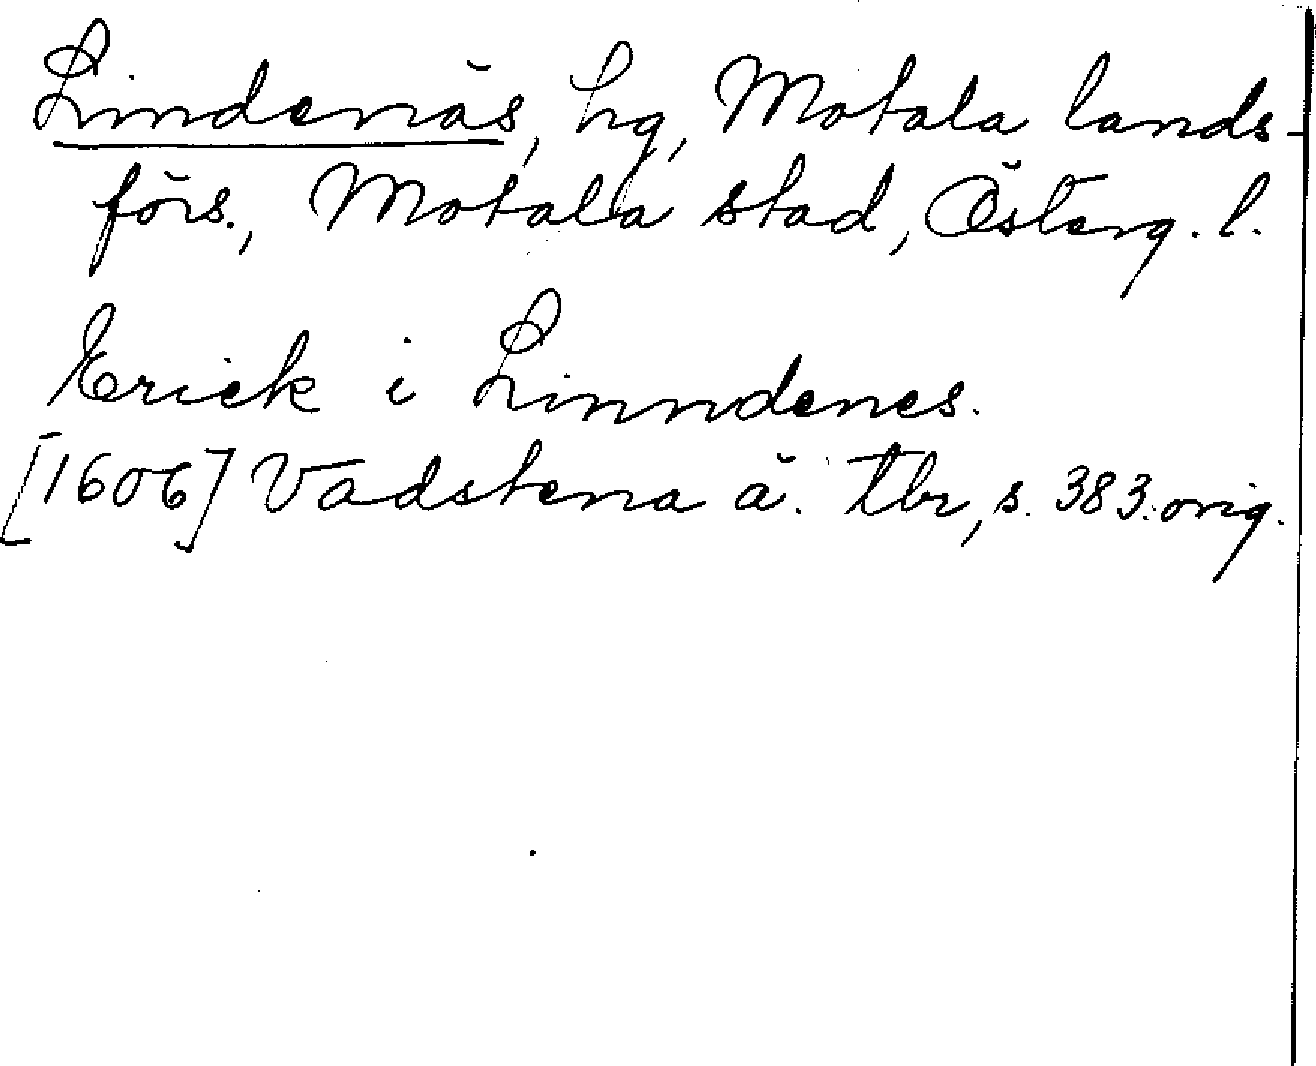 Lindenäs, hg, Motala lands-
förs., Motala stad, Österg. l.
Erick i Linndenes.
[1606] Vadstena ä. tbr, s. 383. orig.